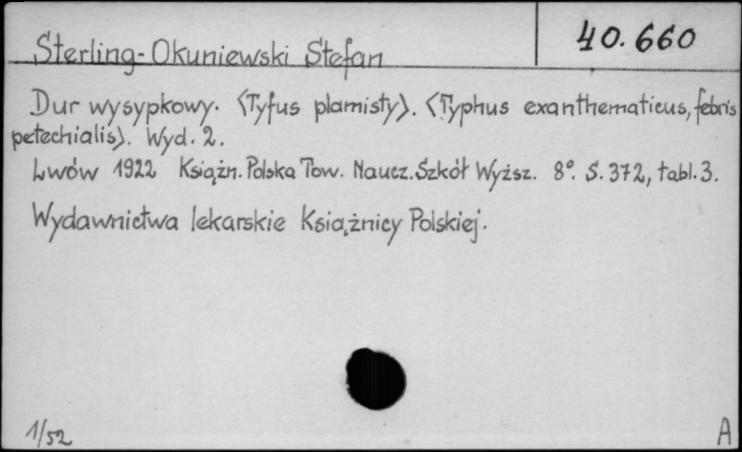 Sterling-Okuniewski Stefan
40.660
Dur wysypkowy. <Tyfus plamisty>. <Typhus exanthematicus, febris
petechialis>. Wyd. 2.
Lwów 1922 Książn. Polska Tow. Naucz. Szkół Wyższ. 8°. S. 372, tabl. 3.
Wydawnictwa lekarskie Książnicy Polskiej.
1/52
A